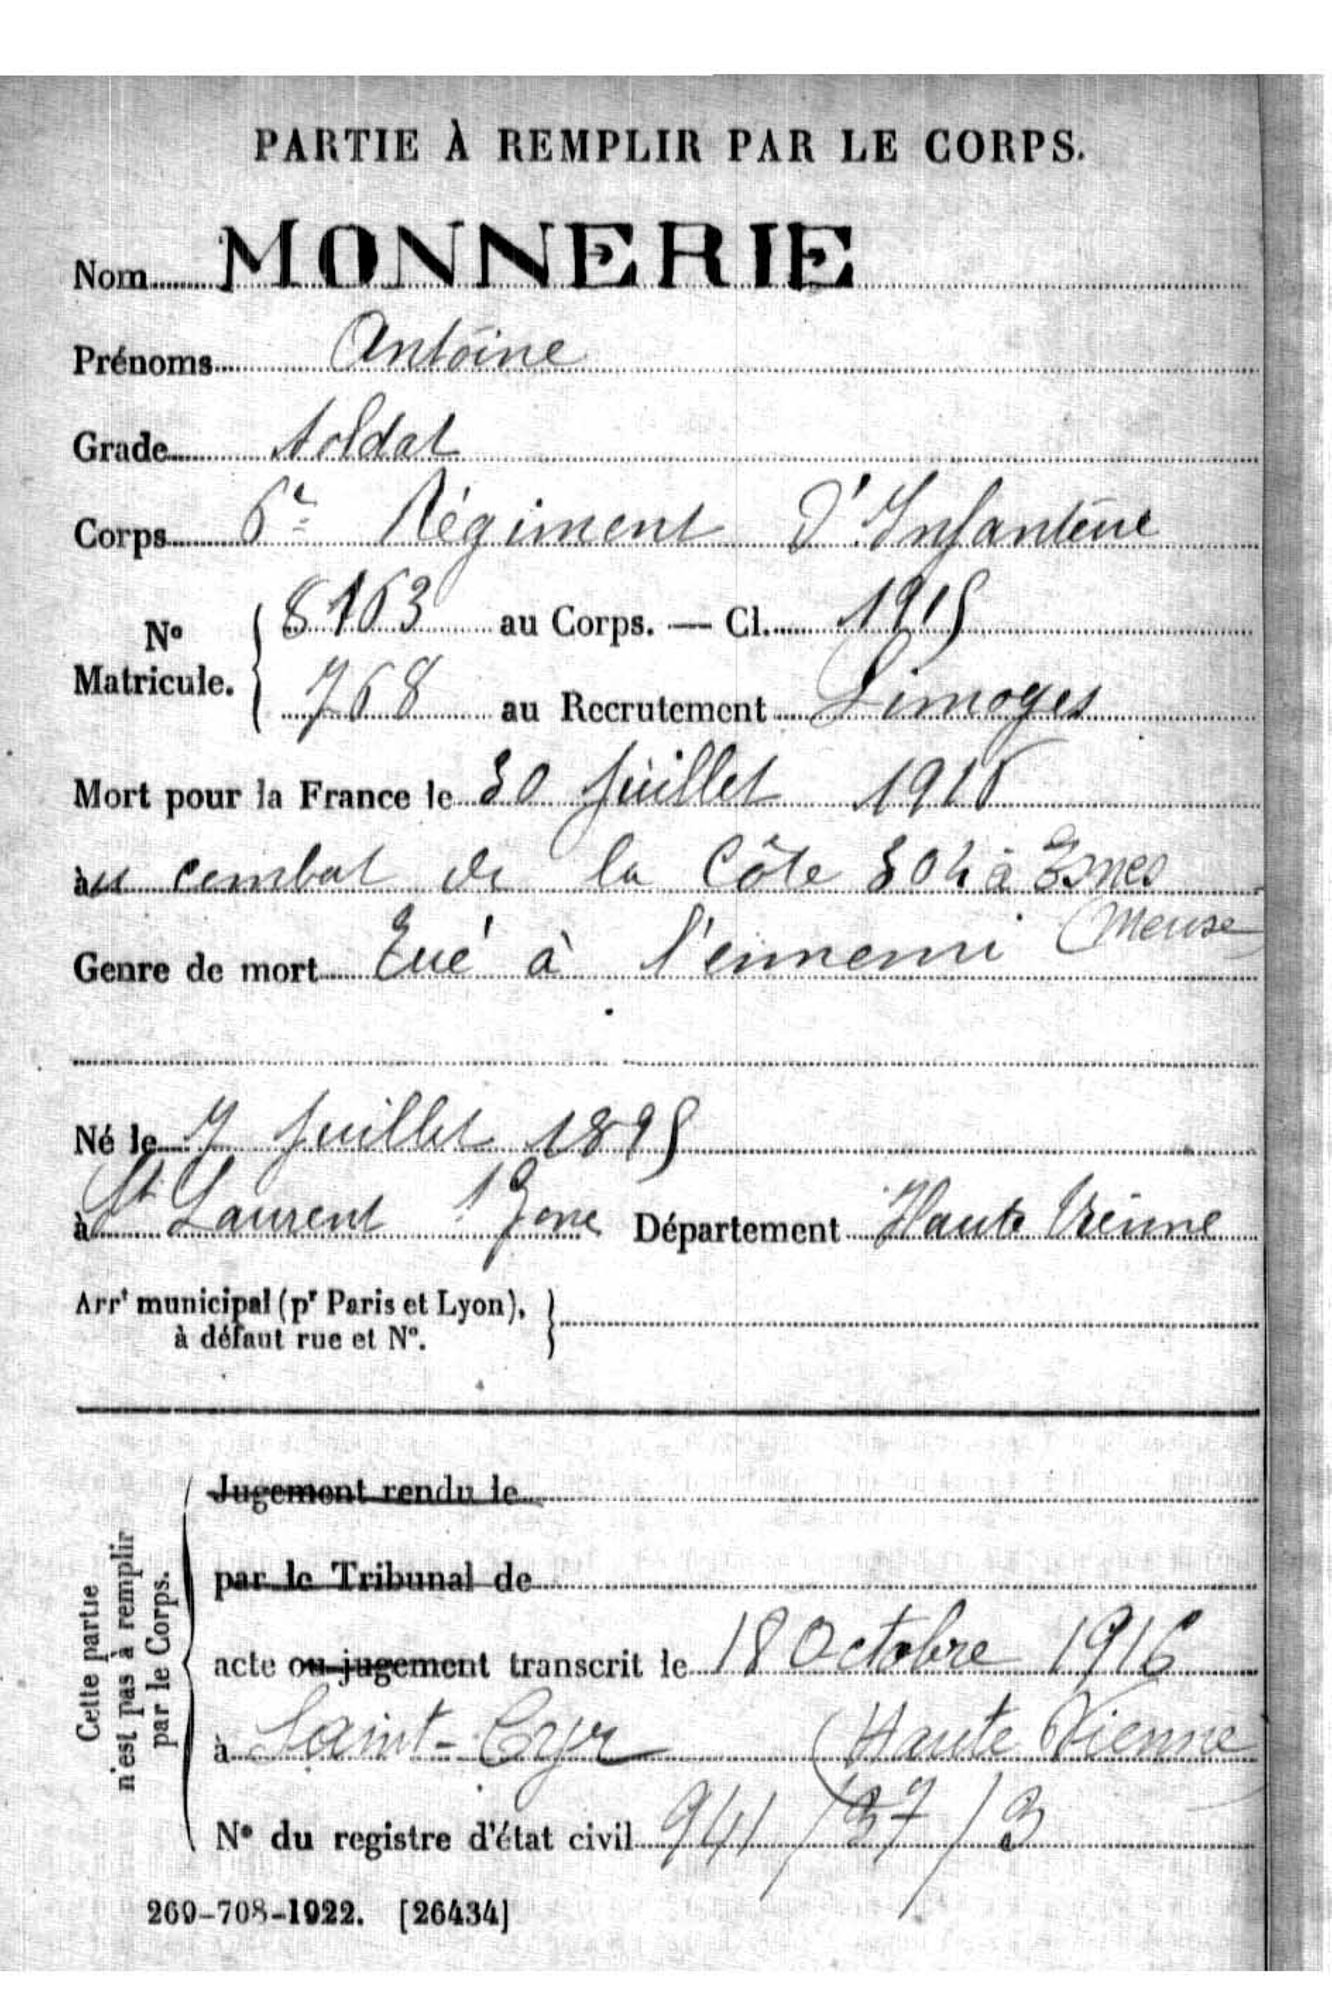 PARTIE À REMPLIR PAR LE CORPS.
Nom MONNERIE
Prénoms Antoine
Grade Soldat
Corps 6e Régiment d'Infanterie
No Matricule. { 8163 au Corps. — Cl. 1915
768 au Recrutement Limoges
Mort pour la France le 30 Juillet 1916
au combat de la Côte 304 à Esnes
(Meuse)
Genre de mort Tué à l'ennemi
Né le 7 Juillet 1895
à St Laurent s/ Gorre Département Haute Vienne
Arrt municipal (pr Paris et Lyon), }
à défaut rue et No.
Cette partie n'est pas à remplir par le Corps.
Jugement rendu le
par le Tribunal de
acte ou jugement transcrit le 18 Octobre 1916
à Saint-Cyr (Haute Vienne)
No du registre d'état civil 941/37/3
269-708-1922. [26434]